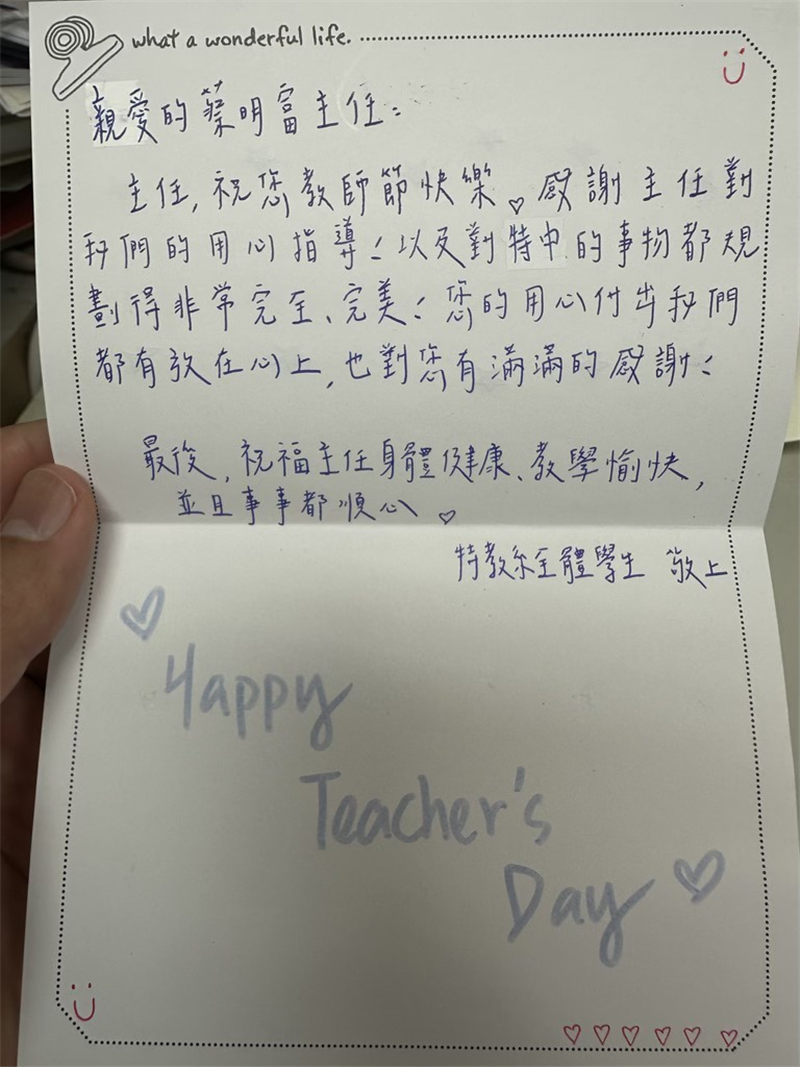 what a wonderful life.
親愛的蔡明富主任：
主任，祝您教師節快樂。感謝主任對
我們的用心指導！以及對特中的事物都規
劃得非常完全、完美！您的用心付出我們
都有放在心上，也對您有滿滿的感謝！
最後，祝福主任身體健康、教學愉快，
並且事事都順心。
特教系全體學生 敬上
Happy
Teacher's
Day